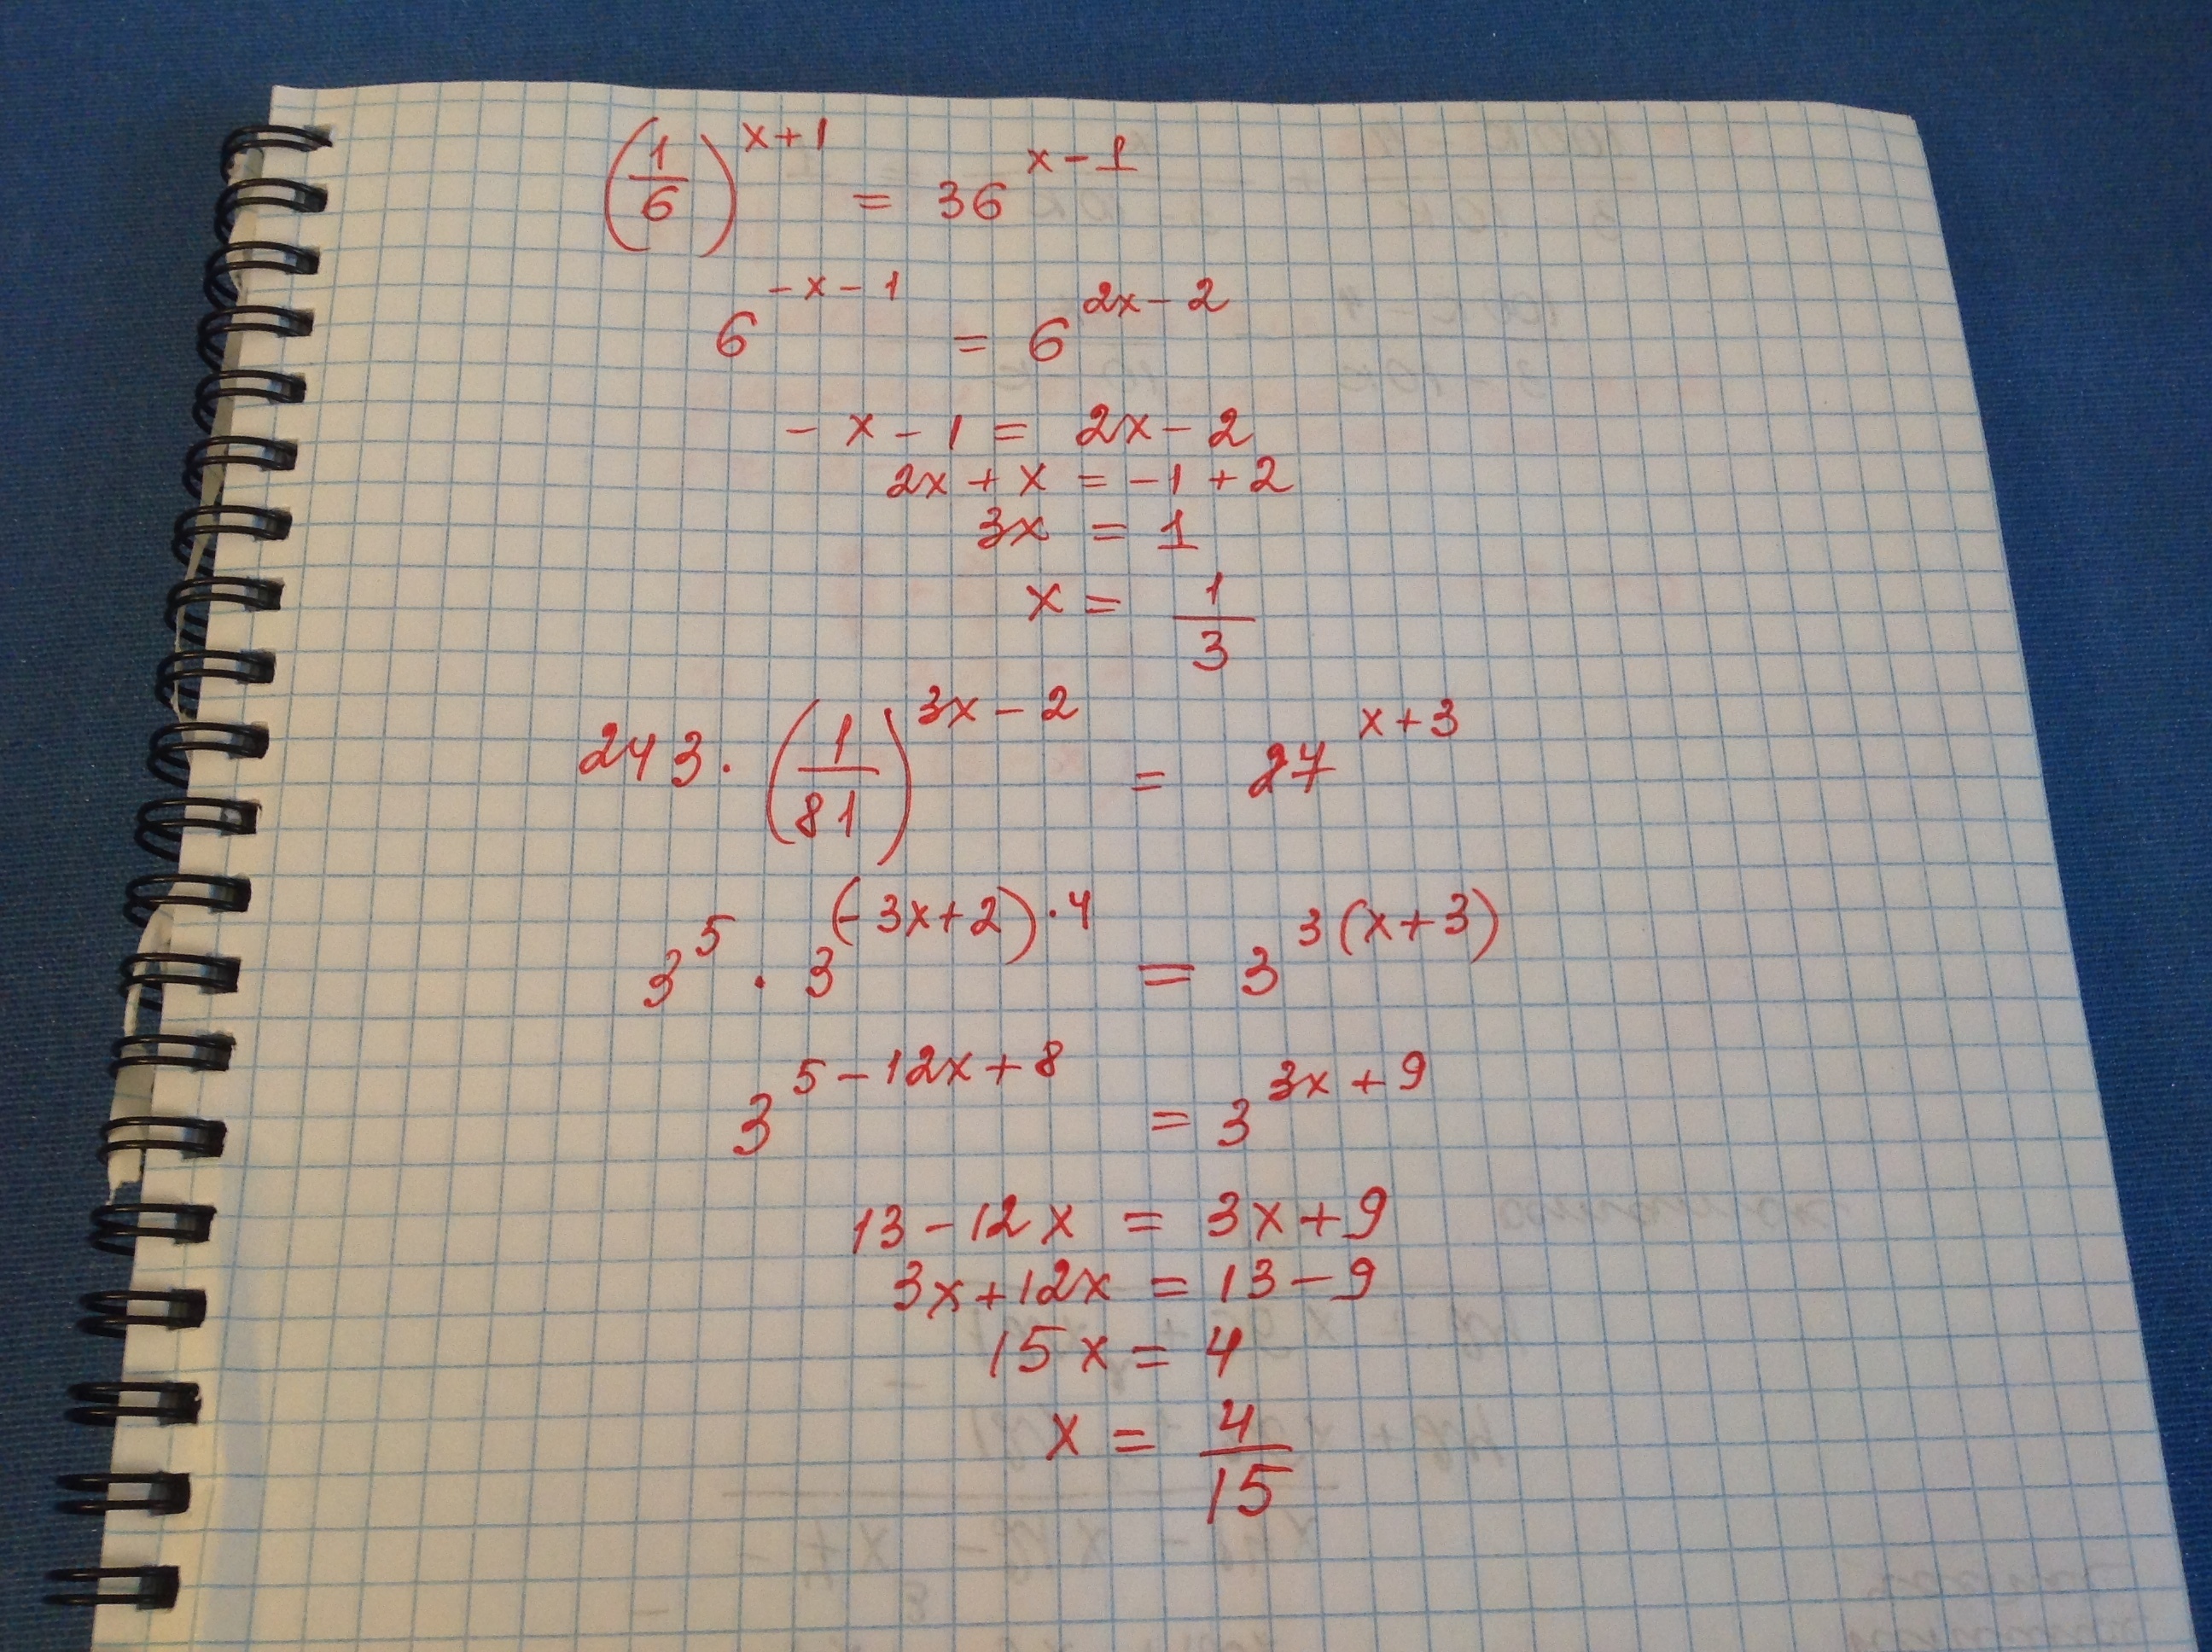 (1/6)^(x+1) = 36^(x-1)
6^(-x-1) = 6^(2x-2)
-x-1 = 2x-2
2x+x = -1+2
3x = 1
x = 1/3
243·(1/81)^(3x-2) = 27^(x+3)
3^5 · 3^((-3x+2)·4) = 3^(3(x+3))
3^(5-12x+8) = 3^(3x+9)
13-12x = 3x+9
3x+12x = 13-9
15x = 4
x = 4/15